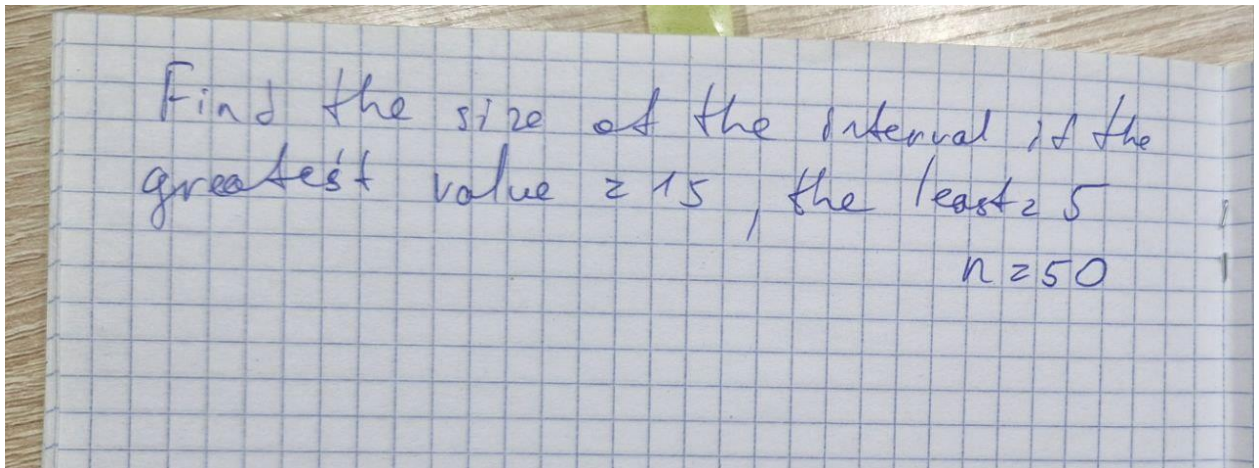 Find the size of the interval if the
greatest value = 15, the least = 5
n = 50